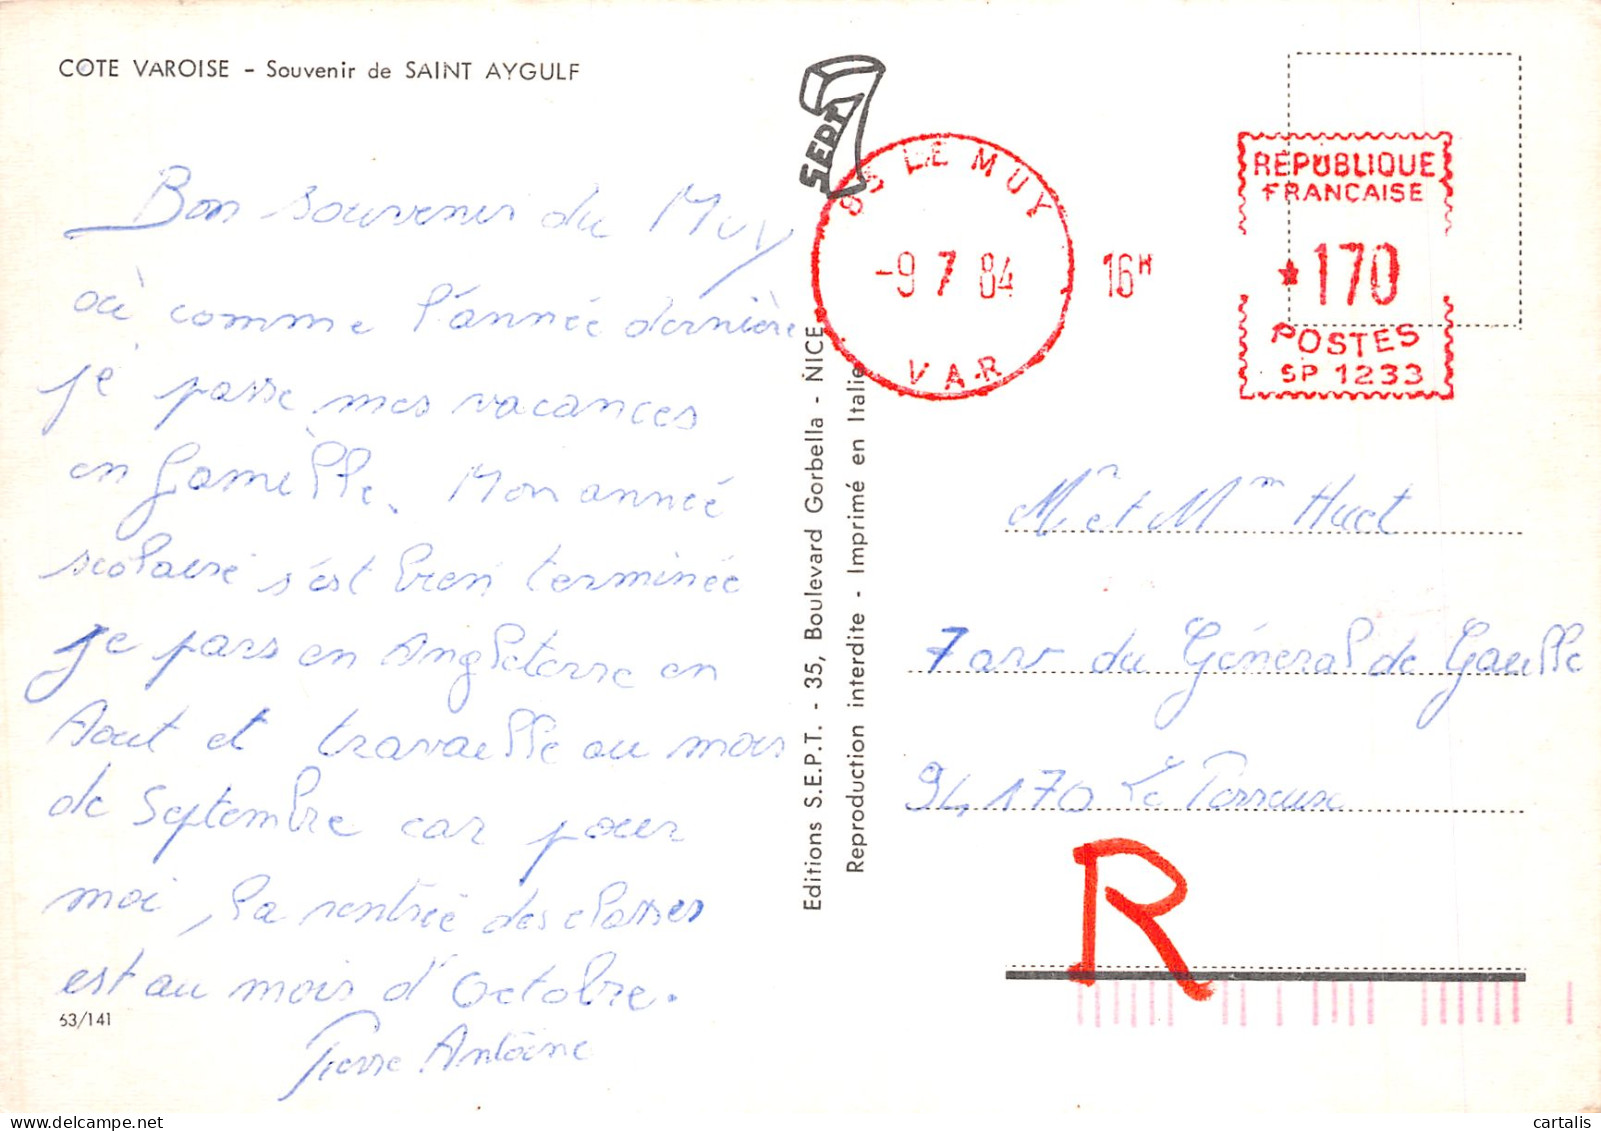 COTE VAROISE - Souvenir de SAINT AYGULF
Bon souvenir du Muy
où comme l'année dernière
je passe mes vacances
en famille. Mon année
scolaire s'est bien terminée
je pars en Angleterre en
Aout et travaille au mois
de Septembre car pour
moi, la rentrée des classes
est au mois d'Octobre.
Pierre Antoine
53/141
SEPT
Editions S.E.P.T. - 35, Boulevard Gorbella - NICE
Reproduction interdite - Imprimé en Italie
83 LE MUY
-9 7 84
VAR
16H
RÉPUBLIQUE
FRANCAISE
★170
POSTES
SP 1233
Mr et Mme Huet
7 av du Général de Gaulle
94170 Le Perreux
R
cartalis
© Delcampe.net